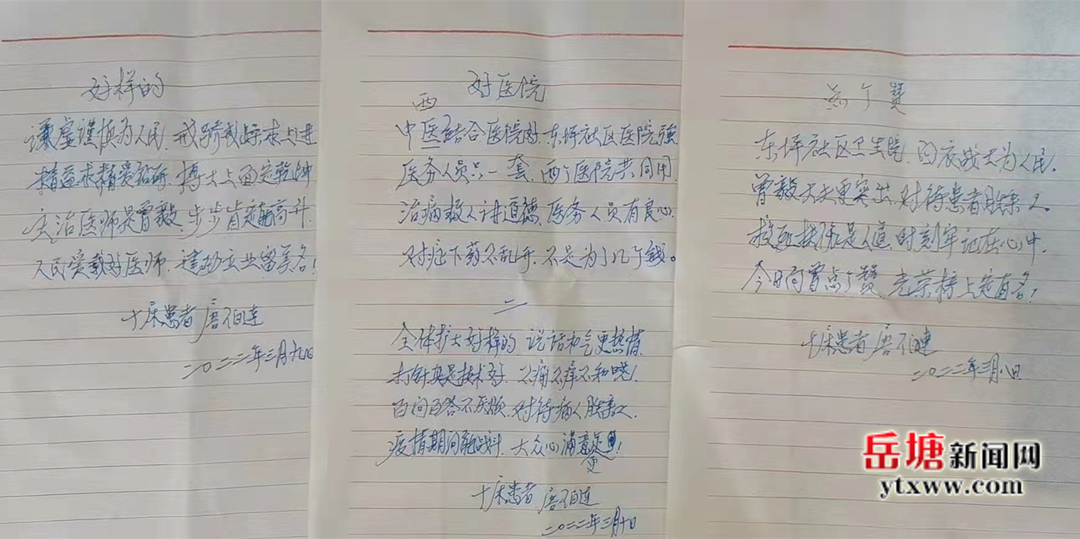 好样的
谦虚谨慎为人民,戒骄戒躁求上进
精益求精爱钻研,博士上面定乾坤
主治医师是曾毅,步步肯定高升
人民爱戴好医师,建功立业留美名!
十床患者唐伯连
二〇二二年三月九日
好医院
西
中医结合医院好,东坪社区医院强
医务人员只一套,两个医院共同用
治病救人讲道德,医务人员有良心
对症下药不乱开,不是为了几个钱。
二
全体护士好样的,说话和气更热情
打针真是技术好,不痛不痒不和
百问百答不厌烦,对待病人胜亲人
疫情期间,大众心满意足!
十床患者唐伯连
二〇二二年三月十日
点个赞
东坪社区卫生院,白衣战士为人民
曾毅大夫更突出,对待患者胜亲人
救死扶伤是人道,时刻牢记在心中
今日向曾点个赞,光荣榜上定有名!
十床患者唐伯连
二〇二二年三月八日
岳塘新闻网
ytxww.com